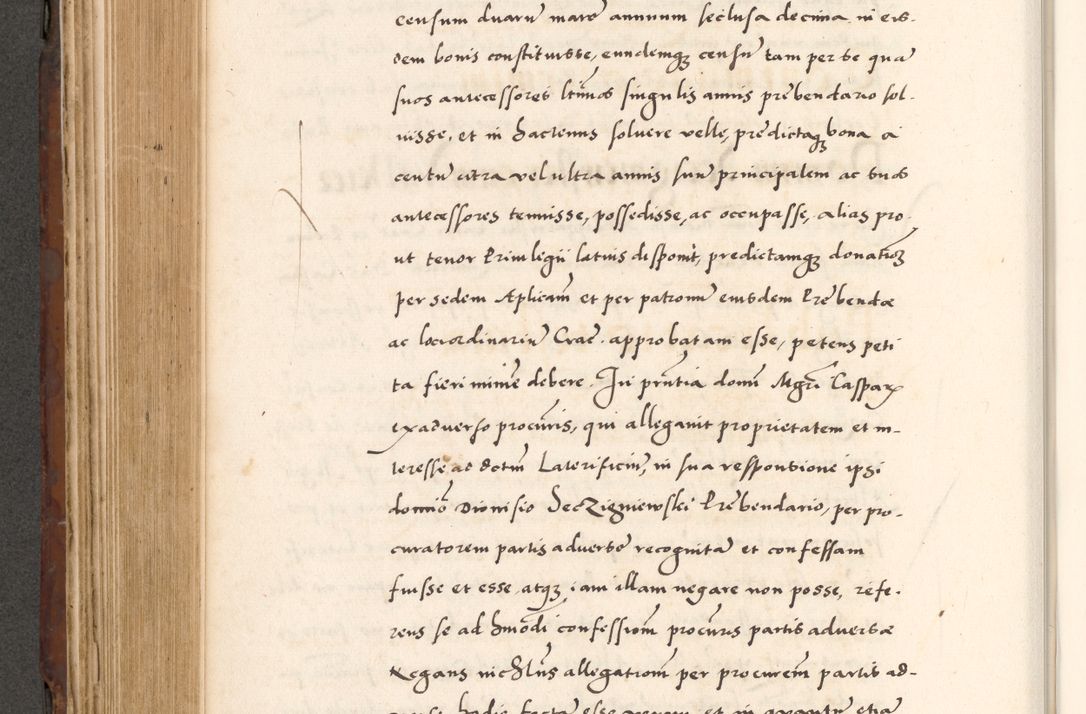 censum duarū marc̄ annuum seclusa decima in eis-
dem bonis constituisse, eundemq₃ censū tam per se quā
suos antecessores ltīmos singulis annis prēbendario sol-
uisse, et in hactenus soluere velle, prēdictaq₃ bona a
centū citra vel ultra annis suū principalem ac suos
antecessores tenuisse, possedisse, ac occupasse, alias pro-
ut tenor Priuilegii latius disponit, predictamq₃ donatioñ
per sedem Aplicam̄ et per patronū eiusdem Prēbendæ
ac loci ordinariū Crac̄. approbatam esse, petens peti
ta fieri minimē debere. In prn̄tia domī Mgrī Caspar
exaduerso procūris, qui allegauit proprietatem et in-
teresse ad dotm̄ Laterificiū, in sua responsione ipsi
domīo Dionisio Seczigniewski Prēbendario, per pro-
curatorem partis aduersæ recognitā et confessam
fuisse et esse, atq₃ iam illam negare non posse, refe-
rens se ad hmōdi confessionm̄ procūris partis aduersæ
Negans nichilus̄ allegationm̄ per procurem̄ partis ad-
hodie facta esse et in quantū etiā